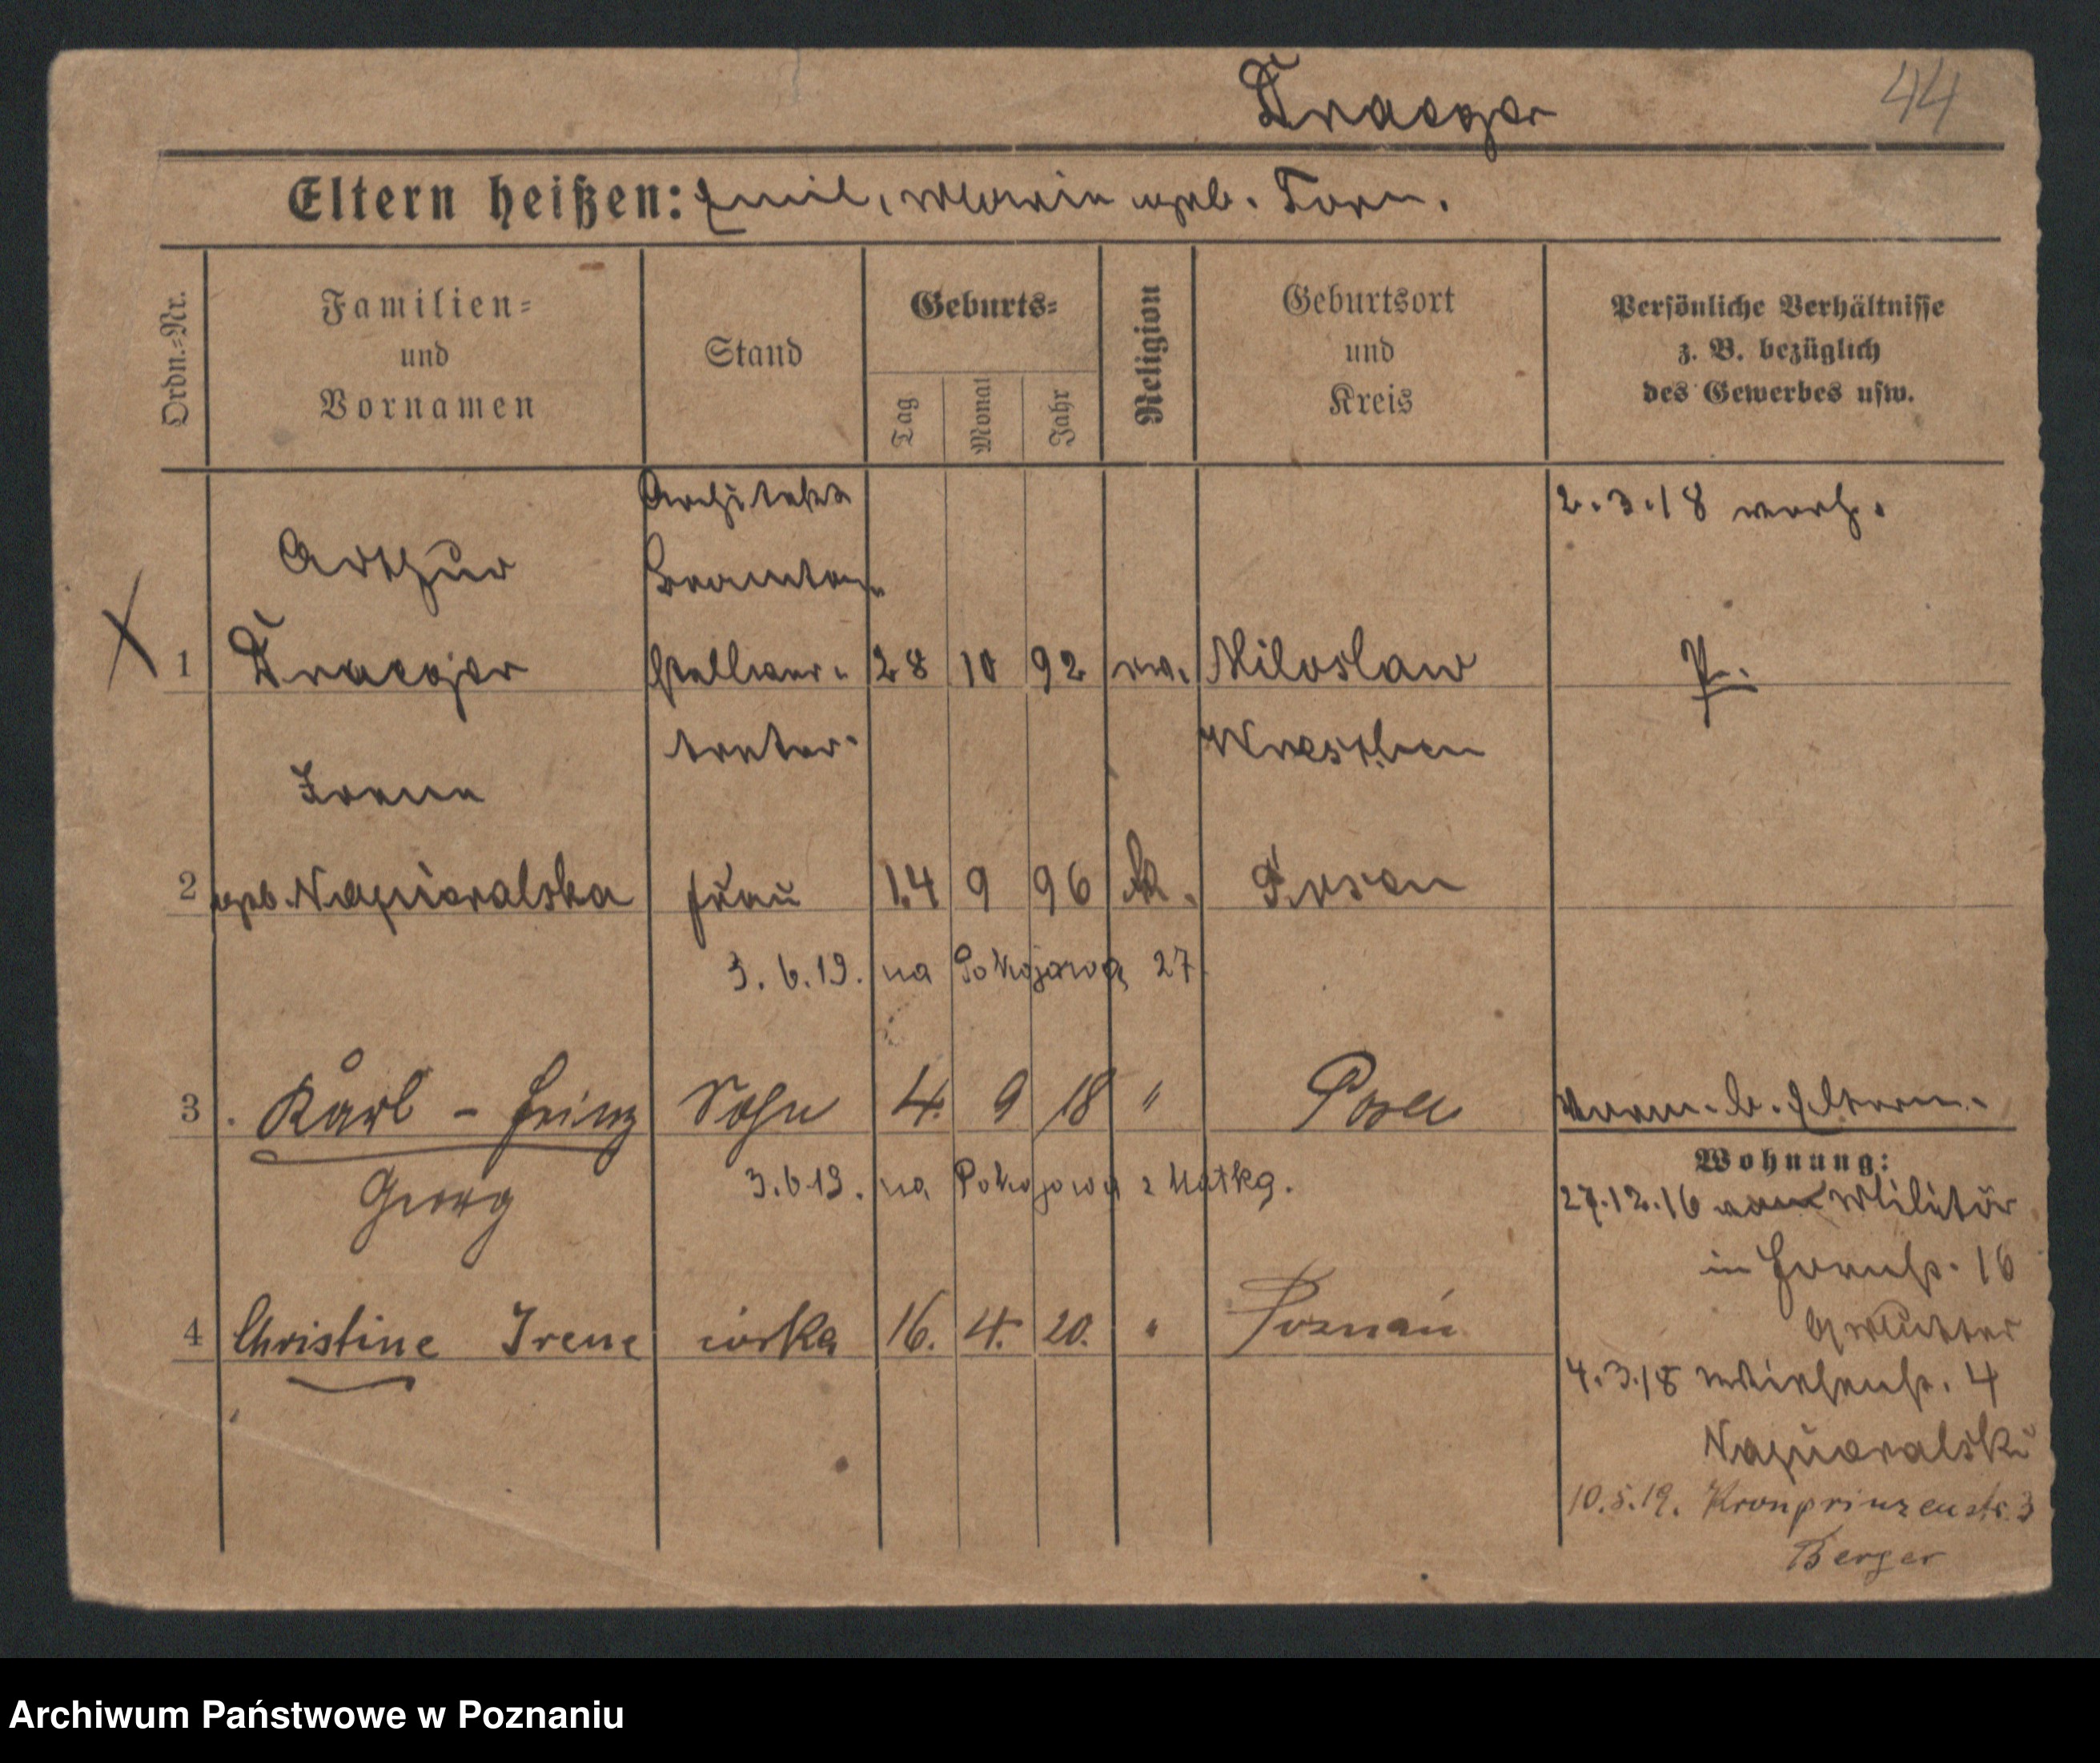 Draeger
44
Eltern heißen: Emil, Marie geb. Torn.
Ordn.=Nr.
Familien=
und
Vornamen
Stand
Geburts=
Tag
Monat
Jahr
Religion
Geburtsort
und
Kreis
Persönliche Verhältnisse
z. B. bezüglich
des Gewerbes usw.
Architekt
2.3.18 verh.
Arthur
Beamten
1 Draeger stellver= 28 10 92 ev. Miloslaw P.
treter Wreschen
Irene
2 geb. Napieralska Frau 14 9 96 k. Posen
3.6.19. na Pokojową 27
3 Karl - Heinz Sohn 4. 9 18 " Posen b. Eltern.
Georg
3.6.19. na Pokojową z Matką.
4 Christine Irene córka 16. 4. 20. " Poznań
Wohnung:
27.12.16 Militär
in 16
4.3.18 4
Napieralski
10.5.19. Kronprinzenstr. 3
Berger
Archiwum Państwowe w Poznaniu